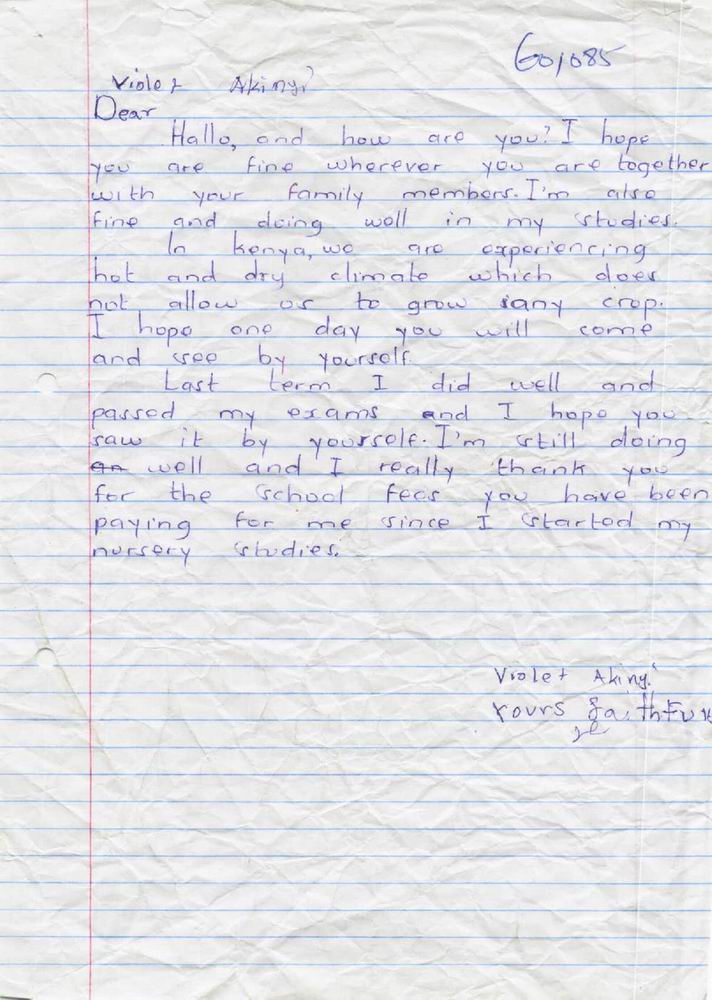 60/085
Violet Akinyi
Dear
Hallo, and how are you? I hope
you are fine wherever you are together
with your family members. I'm also
fine and doing well in my studies.
In Kenya, we are experiencing
hot and dry climate which does
not allow us to grow any crop.
I hope one day you will come
and see by yourself.
Last term I did well and
passed my exams and I hope you
saw it by yourself. I'm still doing
well and I really thank you
for the school fees you have been
paying for me since I started my
nursery studies.
Violet Akinyi
Yours faithfu